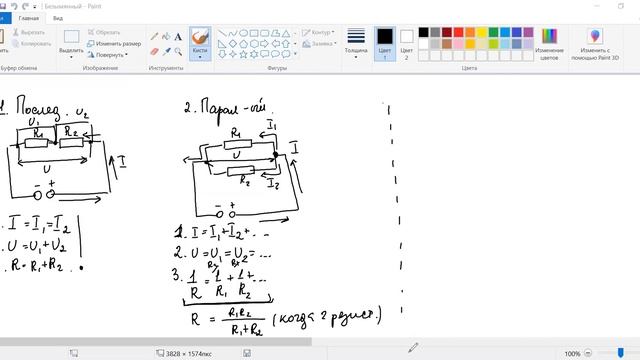 Безымянный - Paint
Файл
Главная
Вид
Вставить
Буфер обмена
Выделить
Обрезать
Изменить размер
Повернуть
Изображение
A
Инструменты
Кисти
Контур
Заливка
Фигуры
Толщина
Цвет 1
Цвет 2
Цвета
Изменение цветов
Изменить с помощью Paint 3D
1. Послед.
U₁ U₂
R₁ R₂
U
I
- +
. I = I₁ = I₂
. U = U₁ + U₂
. R = R₁ + R₂ .
2. Парал-ый.
I₁
R₁
I
U
R₂
I₂
- +
1. I = I₁ + I₂ + ...
2. U = U₁ = U₂ = ...
3. 1/R = 1/R₁ + 1/R₂ + ...
R = R₁R₂/(R₁+R₂) (когда 2 резист.)
3828 × 1574пкс
100%